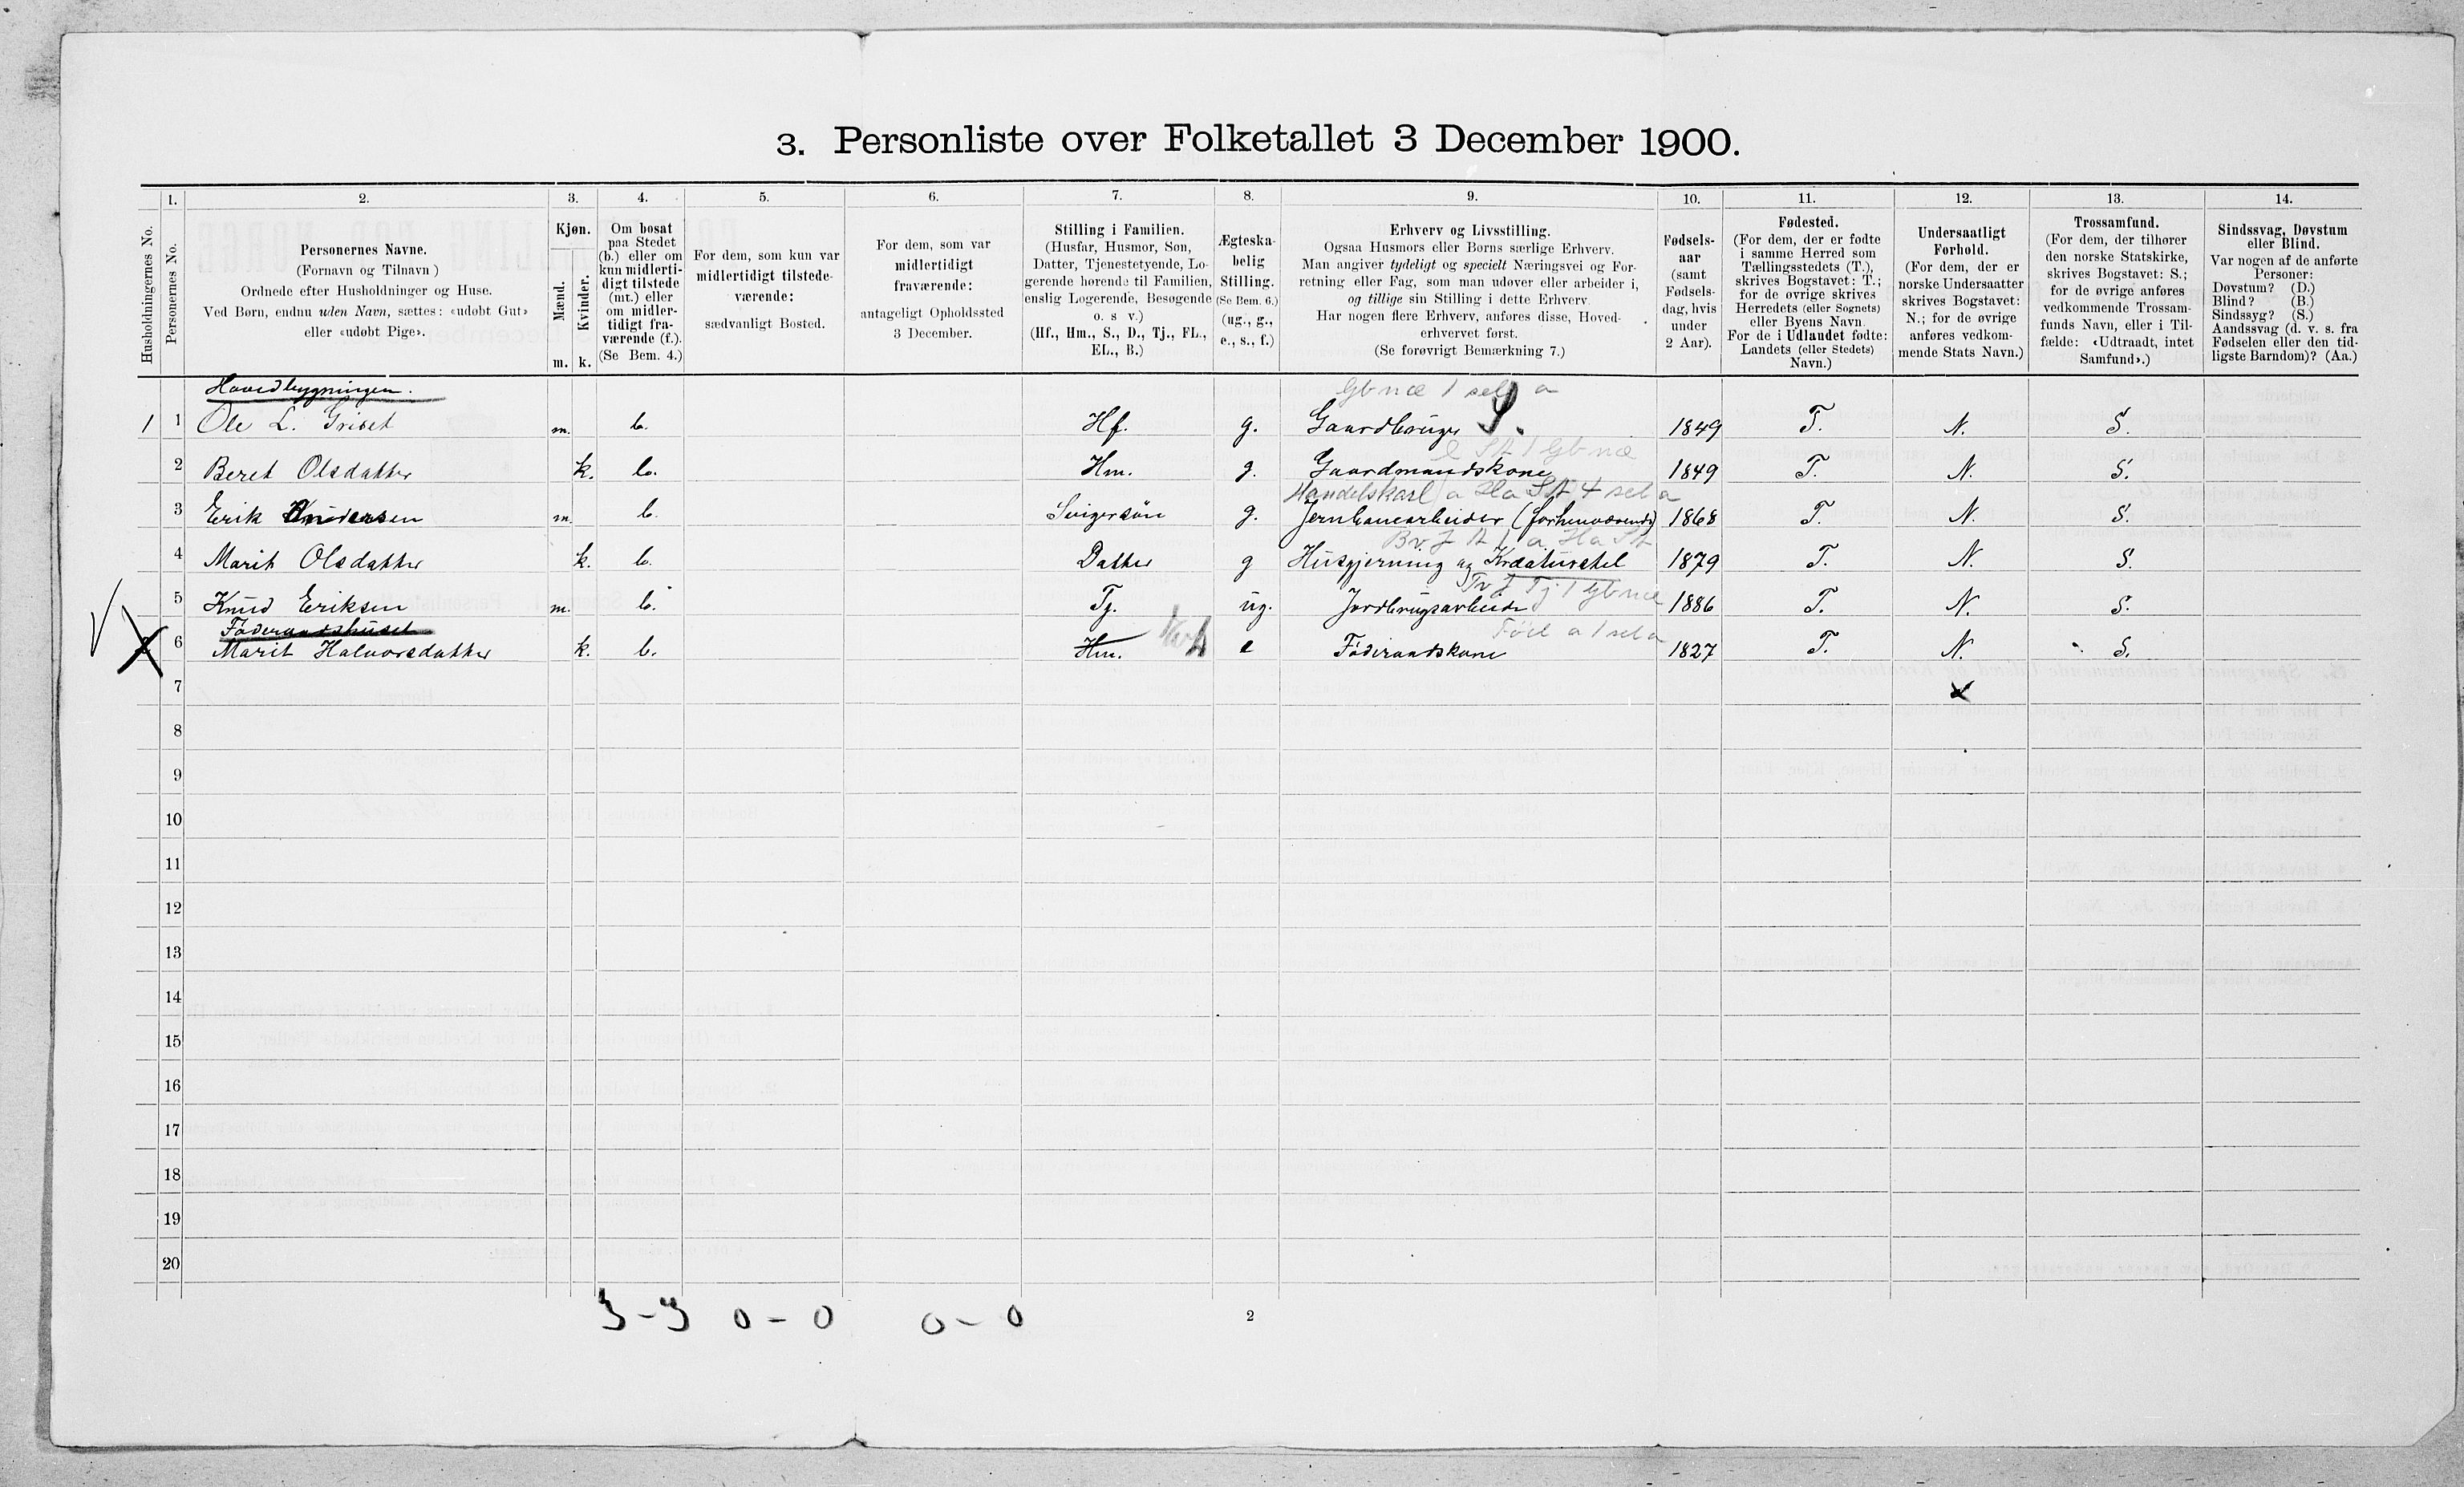 3. Personliste over Folketallet 3 December 1900.
1. 2. 3. 4. 5. 6. 7. 8. 9. 10. 11. 12. 13. 14.
Husholdningernes No.
Personernes No.
Personernes Navne.
(Fornavn og Tilnavn )
Ordnede efter Husholdninger og Huse.
Ved Børn, endnu uden Navn, sættes: «udøbt Gut»
eller «udøbt Pige».
Kjøn.
Mænd.
Kvinder.
m. k.
Om bosat
paa Stedet
(b.) eller om
kun midlerti-
digt tilstede
(mt.) eller
om midler-
tidigt fra-
værende (f.).
(Se Bem. 4.)
For dem, som kun var
midlertidigt tilstede-
værende:
sædvanligt Bosted.
For dem, som var
midlertidigt
fraværende:
antageligt Opholdssted
3 December.
Stilling i Familien.
(Husfar, Husmor, Søn,
Datter, Tjenestetyende, Lo-
gerende hørende til Familien,
enslig Logerende, Besøgende
o. s v.)
(Hf., Hm., S., D., Tj., FL.,
EL., B.)
Ægteska-
belig
Stilling.
(Se Bem. 6.)
(ug., g.,
e., s., f.)
Erhverv og Livsstilling.
Ogsaa Husmors eller Børns særlige Erhverv.
Man angiver tydeligt og specielt Næringsvei og For-
retning eller Fag, som man udøver eller arbeider i,
og tillige sin Stilling i dette Erhverv.
Har nogen flere Erhverv, anføres disse, Hoved-
erhvervet først.
(Se forøvrigt Bemærkning 7.)
Fødsels-
aar
(samt
Fødsels-
dag, hvis
under
2 Aar).
Fødested.
(For dem, der er fødte
i samme Herred som
Tællingsstedets (T.),
skrives Bogstavet: T.;
for de øvrige skrives
Herredets (eller Sognets)
eller Byens Navn.
For de i Udlandet fødte:
Landets (eller Stedets)
Navn.)
Undersaatligt
Forhold.
(For dem, der er
norske Undersaatter
skrives Bogstavet:
N.; for de øvrige
anføres vedkom-
mende Stats Navn.)
Trossamfund.
(For dem, der tilhører
den norske Statskirke,
skrives Bogstavet: S.;
for de øvrige anføres
vedkommende Trossam-
funds Navn, eller i Til-
fælde: «Udtraadt, intet
Samfund».)
Sindssvag, Døvstum
eller Blind.
Var nogen af de anførte
Personer:
Døvstum? (D.)
Blind? (B.)
Sindssyg? (S.)
Aandssvag (d. v. s. fra
Fødselen eller den tid-
ligste Barndom)? (Aa.)
Hovedbygningen. Gbnœ 1 sel a
1 1 Ole L. Griset m. b. Hf. g. Gaardbruger 1849 T. N. S.
2 Beret Olsdatter k. b. Hm. g. Gaardmandskone 1849 T. N. S.
Handelskarl a Ha St 4 sel a
3 Erik Knudsen m. b. Svigersøn g. Jernbanearbeider (forhenværende) 1868 T. N. S.
4 Marit Olsdatter k. b. Datter g Husgjerning og Kreaturstel 1879 T. N. S.
5 Knud Eriksen m. b. Tj. ug. Jordbrugsarbeide 1886 T. N. S.
Føderaadshuset
6 Marit Halvorsdatter k. b. Hm. e Føderaadskone 1827 T. N. S.
7
8
9
10
11
12
13
14
15
16
17
18
19
20
3-3 0-0 0-0
2